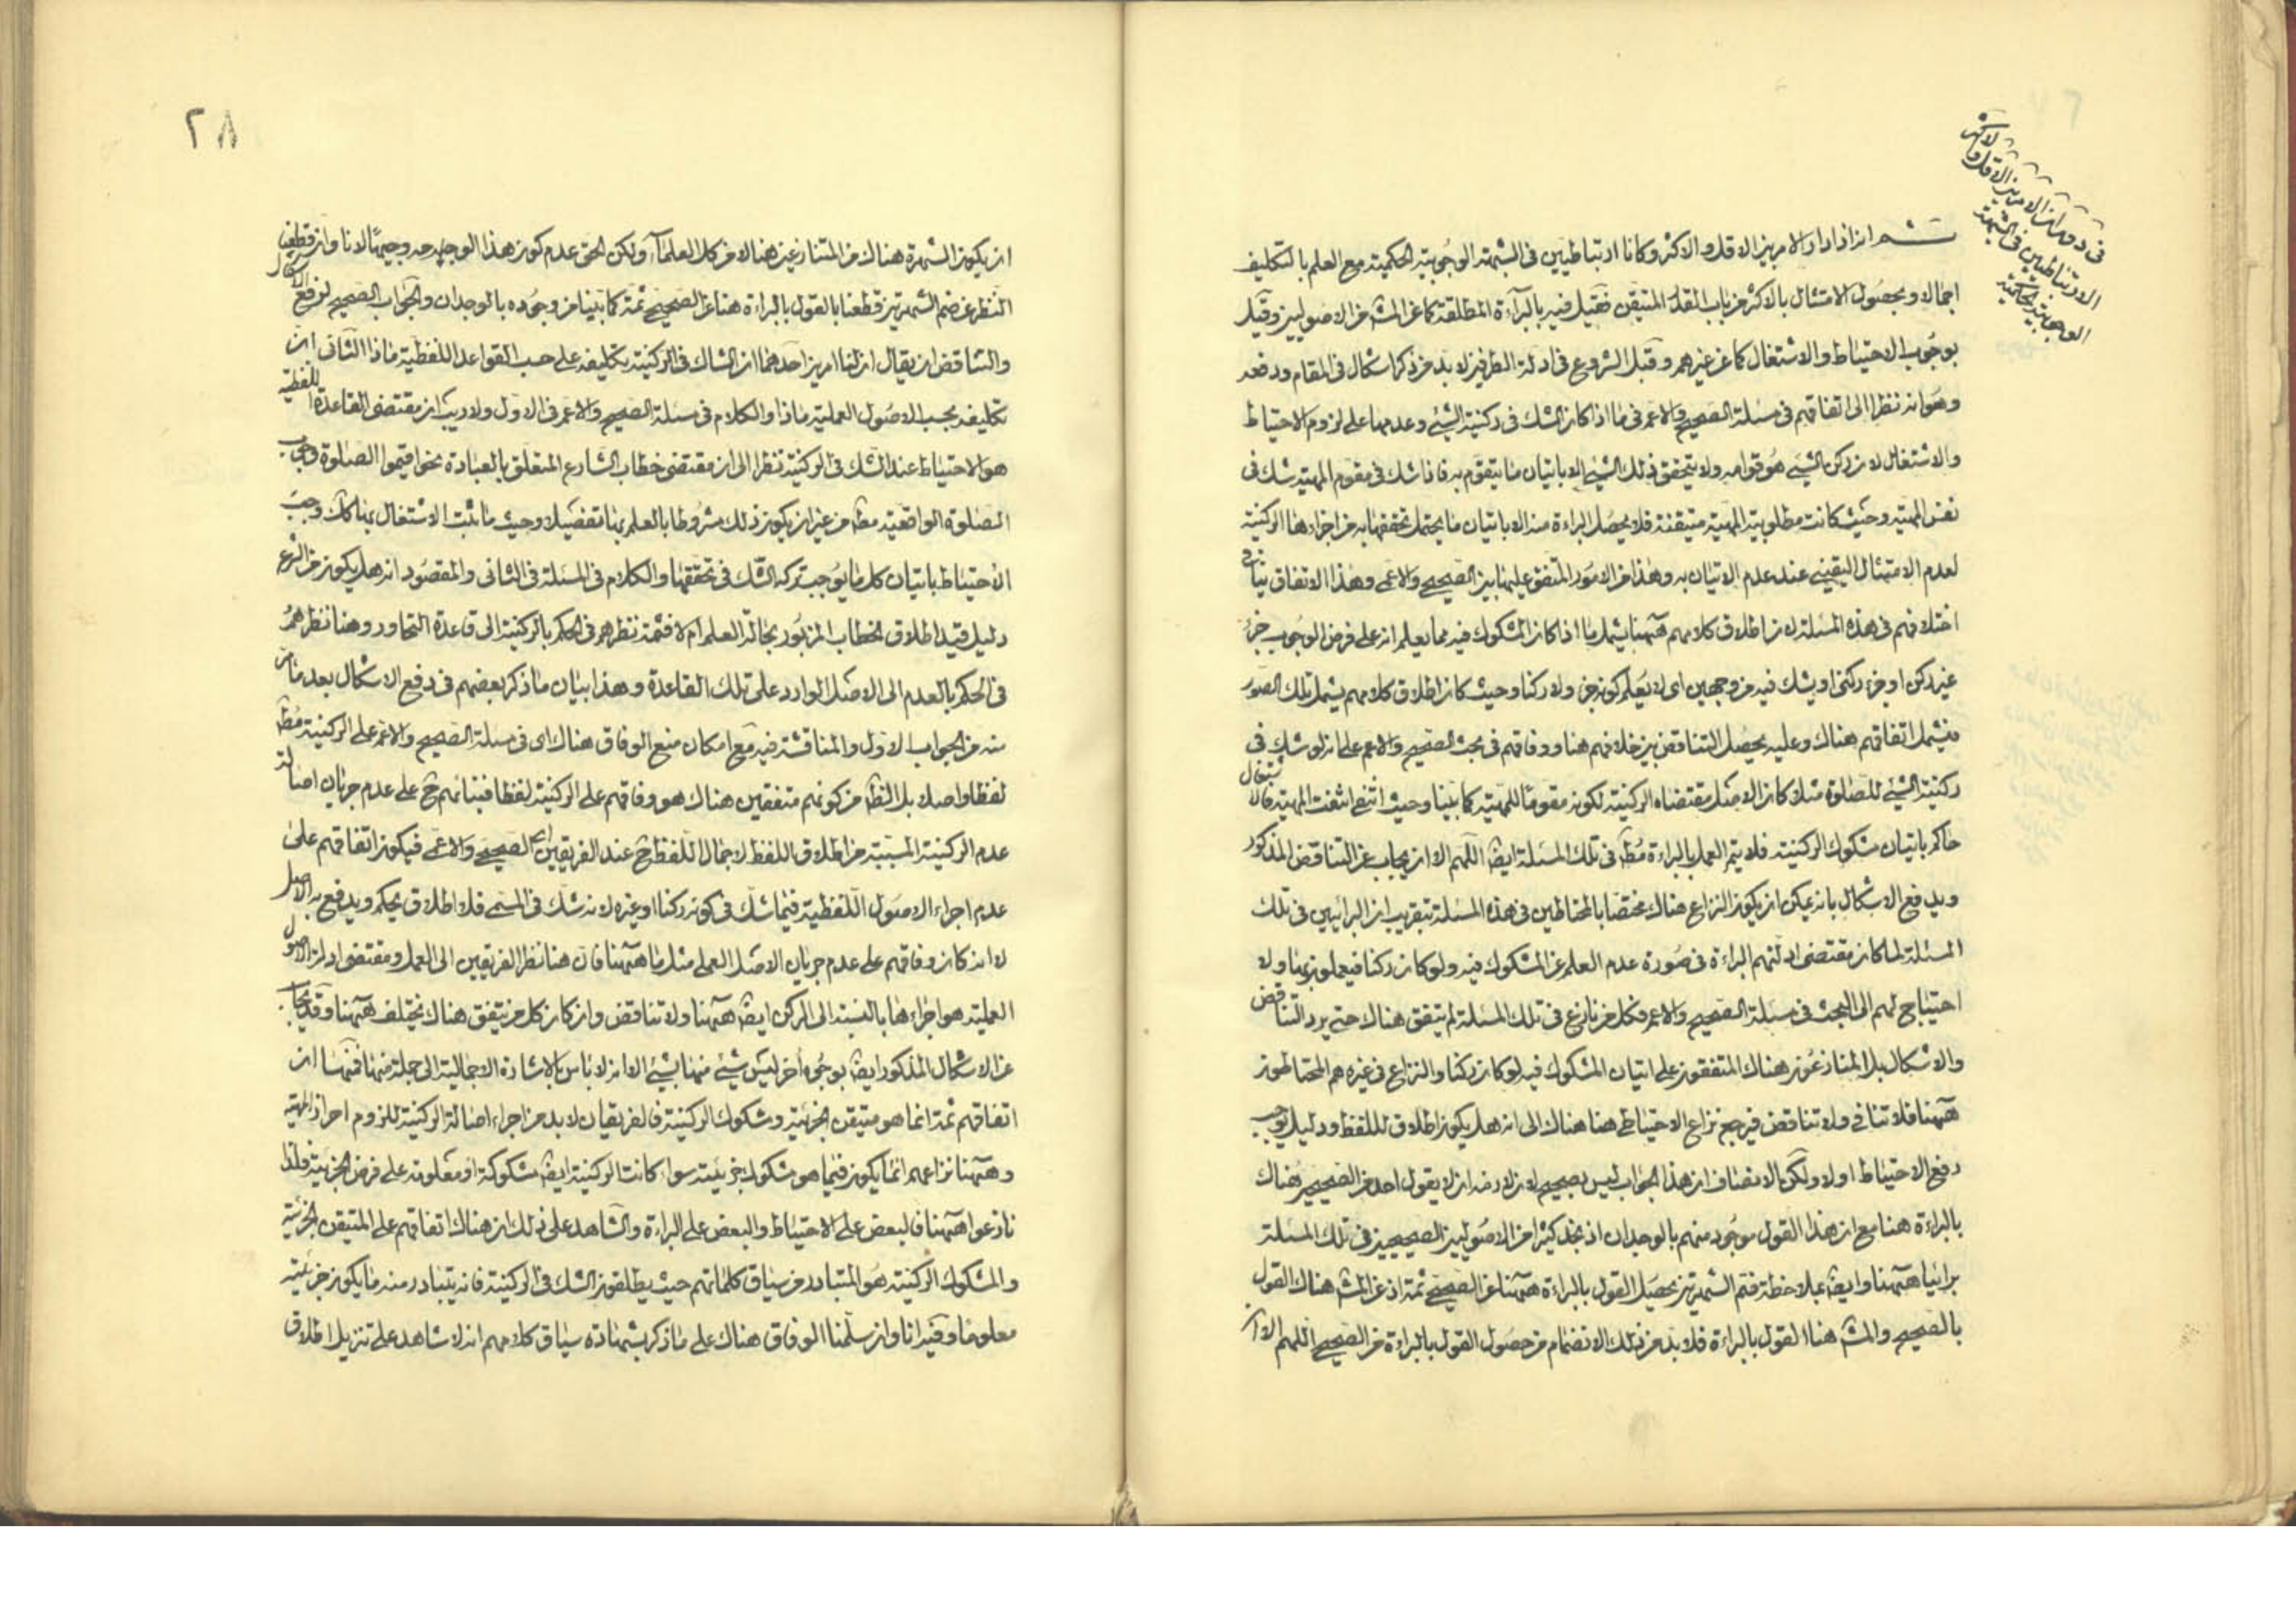 في دوران الامر بين الاقل والاكثر
الارتباطيين في الشبهة
الوجوبية الحكمية
ثم ان اذا دار الامر بين الاقل والاكثر وكانا ارتباطيين في الشبهة الوجوبية الحكمية مع العلم بالتكليف
اجمالا وبحصول الامتثال بالاكثر من باب القدر المتيقن فقيل فيه بالبراءة المطلقة كما عن المش من الاصوليين وقيل
بوجوب الاحتياط والاشتغال كما عن غيرهم وقبل الشروع في ادلة الطرفين لا بد من ذكر اشكال في المقام ودفعه
وهو انه نظرا الى اتفاقهم في مسئلة الصحيح والاعم في ما اذا كان الشك في ركنية الشيء وعدمها على لزوم الاحتياط
والاشتغال لان ركن الشيء هو قوامه ولا يتحقق ذلك الشيء الا باتيان ما يتقوم به فاذا شك في مقوم المهية شك في
نفس المهية وحيث كانت مطلوبية المهية متيقنة فلا يحصل البراءة منه الا باتيان ما يحتمل تحققها به من اجزاءها الركنية
لعدم الامتثال اليقيني عند عدم الاتيان به وهذا من الامور المتفق عليها بين الصحيحي والاعمي وهذا الاتفاق ينافي
اختلافهم في هذه المسئلة لان اطلاق كلامهم هيهنا يشمل ما اذا كان المشكوك فيه مما يعلم انه على فرض الوجوب جزء
غير ركن او جزء ركني او يشك فيه من وجهين اى لا يعلم كونه جزء ولا ركنا وحيث كان اطلاق كلامهم يشمل تلك الصور
فيشمل اتفاقهم هناك وعليه يحصل التناقض بين خلافهم هنا ووفاقهم في بحث الصحيح والاعم على انه لو شك في
ركنية الشيء للصلوة مثلا كان الاصل مقتضاه الركنية لكونه مقوما للمهية كما بينا وحيث انتفى انتفت المهية فالاشتغال
حاكم باتيان مشكوك الركنية فلا يتم العمل بالبراءة مط في تلك المسئلة ايض اللهم الا ان يجاب عن التناقض المذكور
ويدفع الاشكال بانه يمكن ان يكون النزاع هناك مختصا بالمحتاطين في هذه المسئلة بتقريب ان البرائيين في تلك
المسئلة لما كان مقتضى ادلتهم البراءة في صورة عدم العلم عن المشكوك فيه ولو كان ركنا فيعملون بها ولا
احتياج لهم الى البحث في مسئلة الصحيح والاعم فكل من نازع في تلك المسئلة لم يتفق هناك حتى يرد التناقض
والاشكال بل المنازعون هناك المتفقون على اتيان المشكوك فيه لو كان ركنا والنزاع في غيره هم المحتاطون
هيهنا فلا تنافي ولا تناقض فيرجع نزاع الاحتياطي هنا هناك الى انه هل يكون اطلاق للفظ ودليل يوجب
دفع الاحتياط اولا ولكن الانصاف ان هذا الجواب ليس بصحيح لان لازمه ان لا يقول احد من الصحيحين هناك
بالبراءة هنا مع ان هذا القول موجود منهم بالوجدان اذ نجد كثيرا من الاصوليين الصحيحين في تلك المسئلة
برائيا هيهنا وايض بملاحظة ضم الشهرتين يحصل القول بالبراءة هيهنا عن الصحيحي ثمة اذ عن المش هناك القول
بالصحيح والمش هنا القول بالبراءة فلا بد من ذلك الانضمام من حصول القول بالبراءة من الصحيحي اللهم الا
٢٨
ان يكون الشهرة هناك من المتنازعين هنا لا من كل العلماء ولكن الحق عدم كون هذا الوجه وجيها لانا وان قطعنا
النظر عن ضم الشهرتين قطعنا بالقول بالبراءة هنا عن الصحيحي ثمة كما بينا من وجوده بالوجدان والجواب الصحيح لرفع الاشكال
والتناقض ان يقال ان لنا امرين احدهما ان الشاك في الركنية تكليفه على حسب القواعد اللفظية ماذا الثاني ان
تكليفه بحسب الاصول العملية ماذا والكلام في مسئلة الصحيح والاعم في الاول ولا ريب ان مقتضى القاعدة اللفظية
هو الاحتياط عند الشك في الركنية نظرا الى ان مقتضى خطاب الشارع المتعلق بالعبادة نحو اقيموا الصلوة وجوب
الصلوة الواقعية مط من غير ان يكون ذلك مشروطا بالعلم بها تفصيلا وحيث ما يثبت الاشتغال بها كك وجب
الاحتياط باتيان كل ما يوجب تركه الشك في تحققها والكلام في المسئلة في الثاني والمقصود انه هل يكون من الشرع
دليل قيد اطلاق الخطاب المزبور بحالة العلم ام لا فثمة نظرهم في الحكم بالركنية الى قاعدة التحاور وهنا نظرهم
في الحكم بالعدم الى الاصل الوارد على تلك القاعدة وهذا بيان ما ذكر بعضهم في دفع الاشكال بعد ما مر
منه من الجواب الاول والمناقشة فيه مع امكان منع الوفاق هناك اى في مسئلة الصحيح والاعم على الركنية مط
لفظا واصلا بل الظ من كونهم متفقين هناك هو وفاقهم على الركنية لفظا فبنائهم ح على عدم جريان اصالة
عدم الركنية المسببة من اطلاق اللفظ لاجمال اللفظ ح عند الفريقين اى الصحيحي والاعمي فيكون اتفاقهم على
عدم اجراء الاصول اللفظية فيما شك في كونه ركنا او غيره لانه شك في المسمى فلا اطلاق يحكم ويدفع به الاصل
لا انه كان وفاقهم على عدم جريان الاصل العملي مثل ما هيهنا فان هنا نظر الفريقين الى العمل ومقتضى ادلة الاصول
العملية هو اجراءها بالنسبة الى الركن ايض هيهنا ولا تناقض وان كان كل من يتفق هناك يختلف هيهنا وقد يجاب
عن الاشكال المذكور ايض بوجوه أخر ليس شيء منها بشيء الا انه لا باس بالاشارة الاجمالية الى جملة منها فمنها ان
اتفاقهم ثمة انما هو متيقن الجزئية ومشكوك الركنية فالفريقان لا بد من اجراء اصالة الركنية للزوم احراز المهية
وهيهنا نزاعهم انما يكون فيما هو مشكوك جزئيته سواء كانت الركنية ايض مشكوكة او معلومة على فرض الجزئية فلذا
نازعوا هيهنا فالبعض على الاحتياط والبعض على البراءة والشاهد على ذلك ان هناك اتفاقهم على المتيقن الجزئية
والمشكوك الركنية هو المتبادر من سياق كلماتهم حيث يطلقون الشك في الركنية فانه يتبادر منه ما يكون جزئيته
معلوما وفيه انا وان سلمنا الوفاق هناك على ما ذكر بشهادة سياق كلامهم انه لا شاهد على تنزيل اطلاق